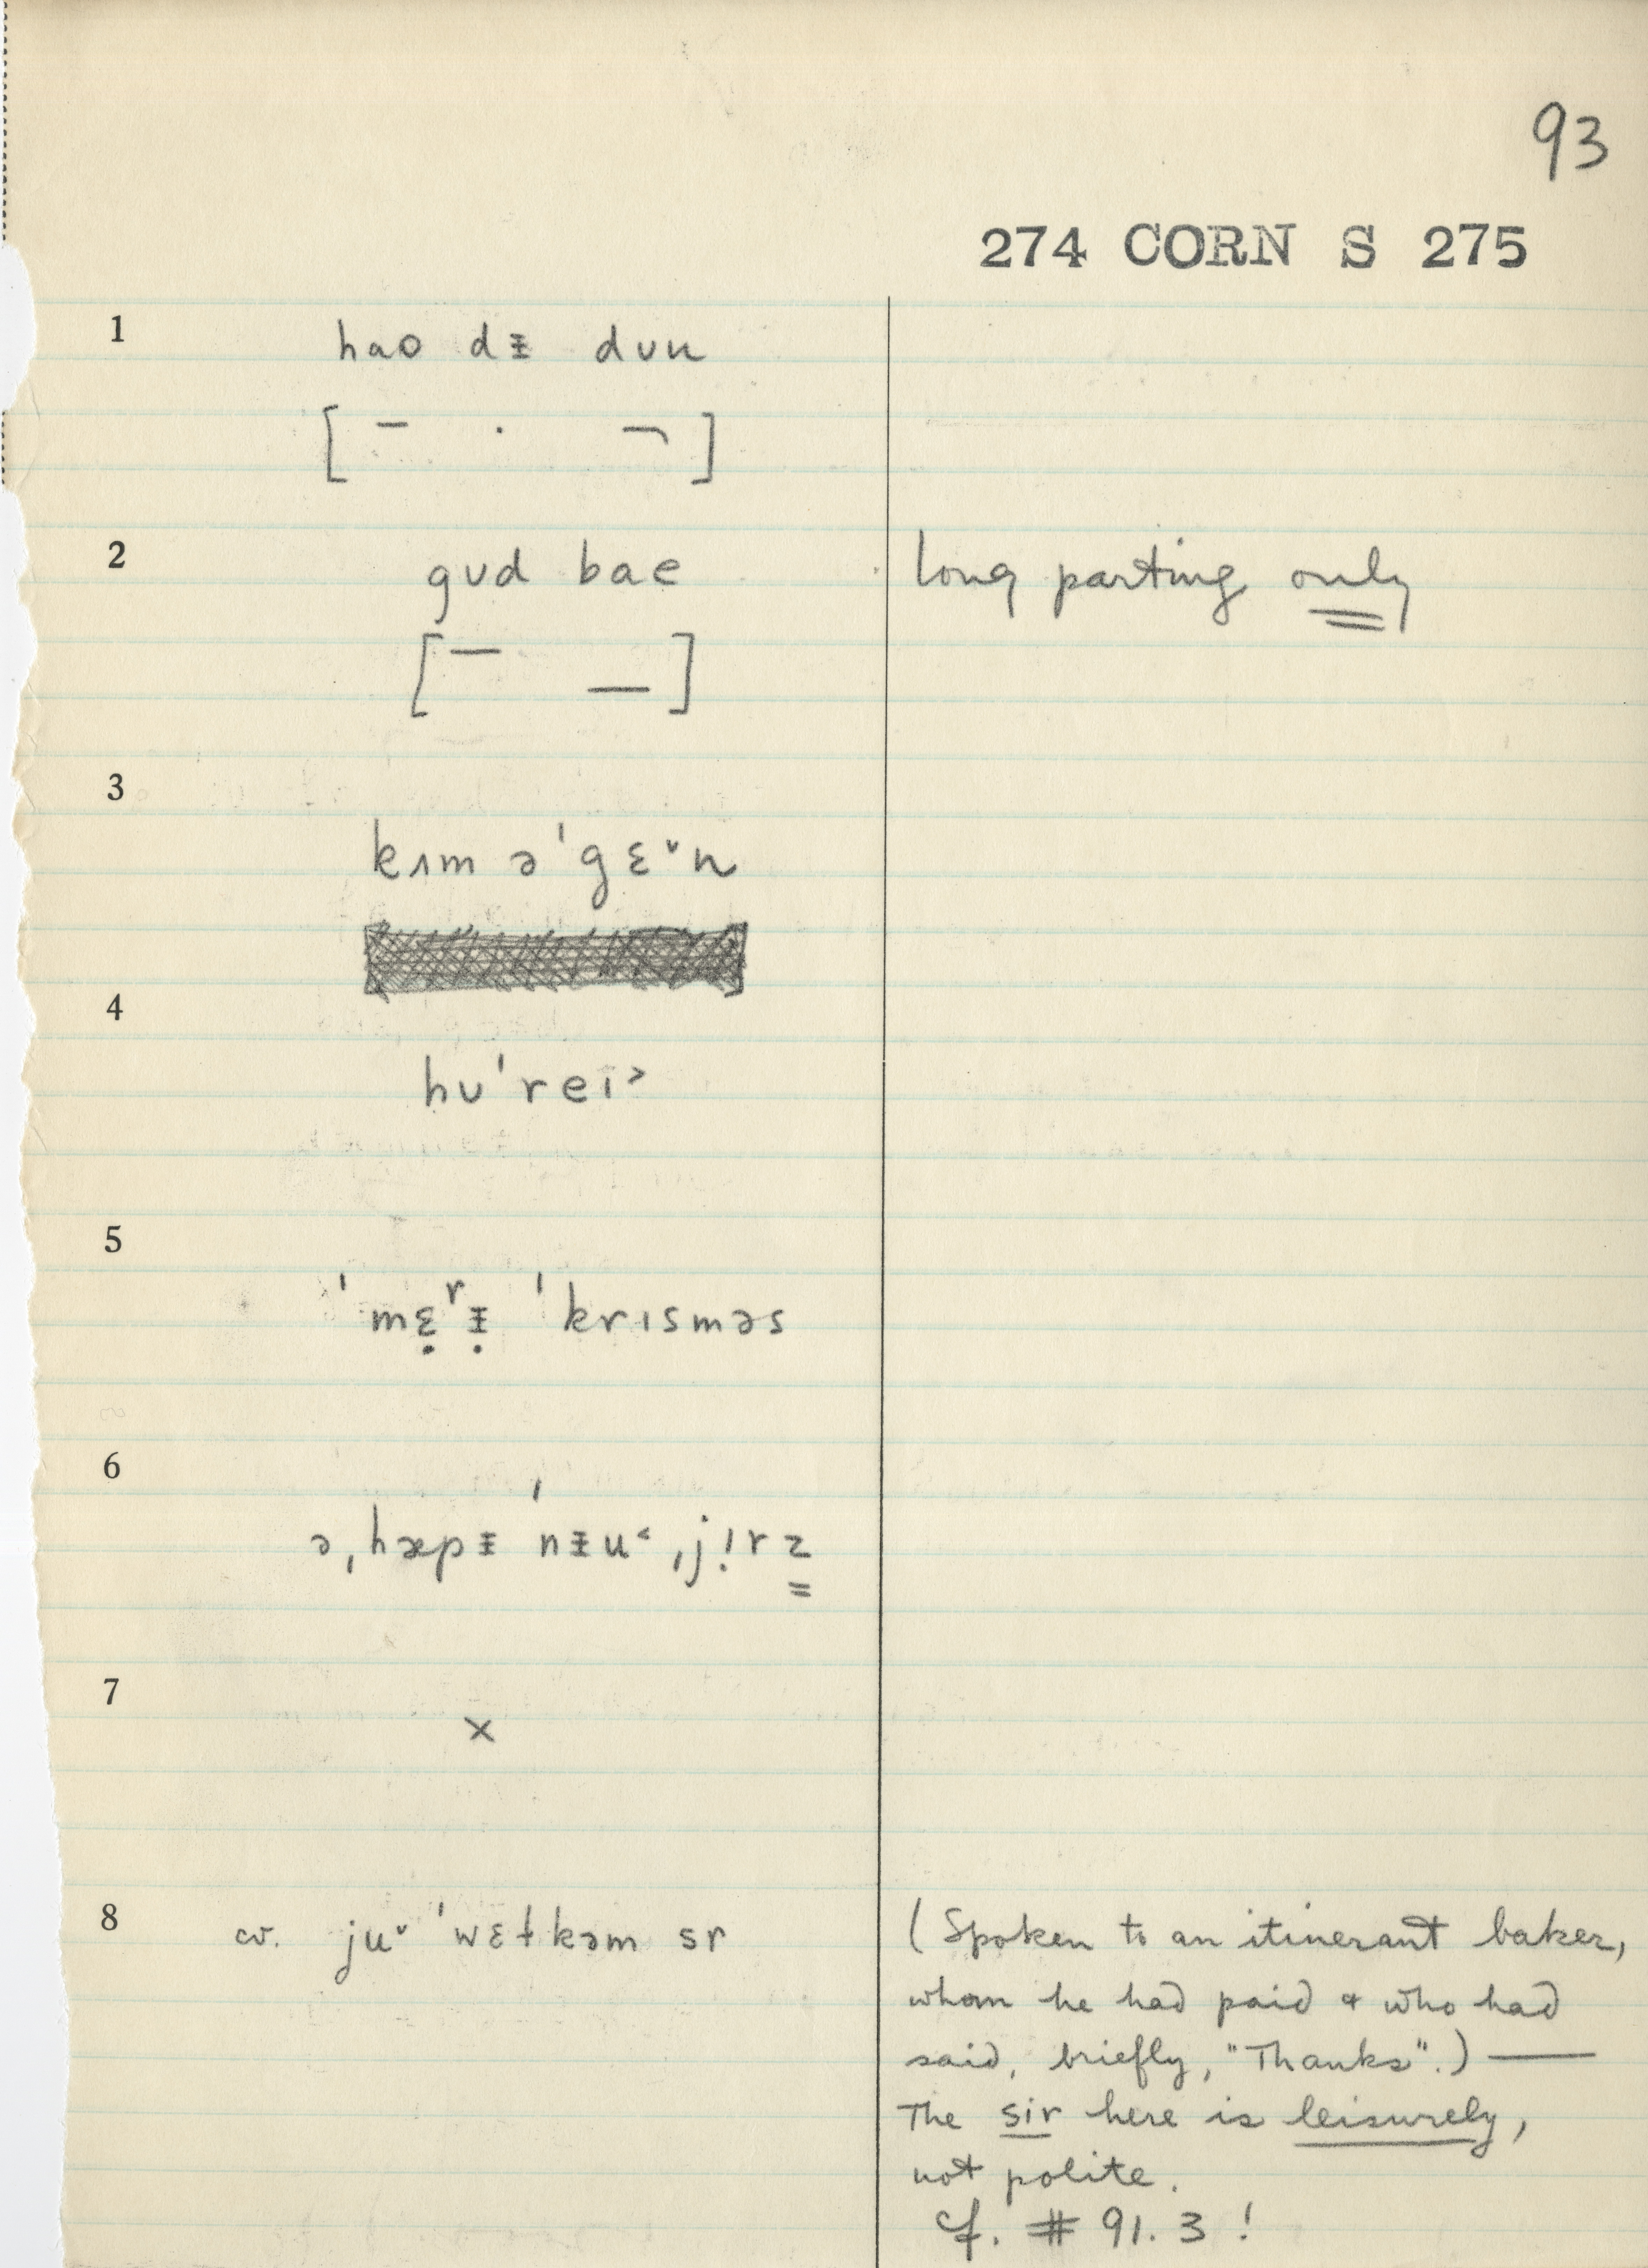 93
274 CORN S 275
1 hao dᵻ dʊu
[ ¯ · ¬ ]
2 gʊd bae long parting only
[ ¯ _ ]
3
kʌm əˈgɛ˅n
4
hʊˈreɪ˃
5
ˈmɛ̣ʳᵻ̣ ˈkrɪsməs
6
əˌhæpᵻ ˈnᵻu˂ ˌjɪ̣rz̳
7
×
8 cv. ju˅ ˈwɛɫkəm sr (Spoken to an itinerant baker,
whom he had paid & who had
said, briefly, "Thanks".) —
The sir here is leisurely,
not polite.
cf. # 91.3!